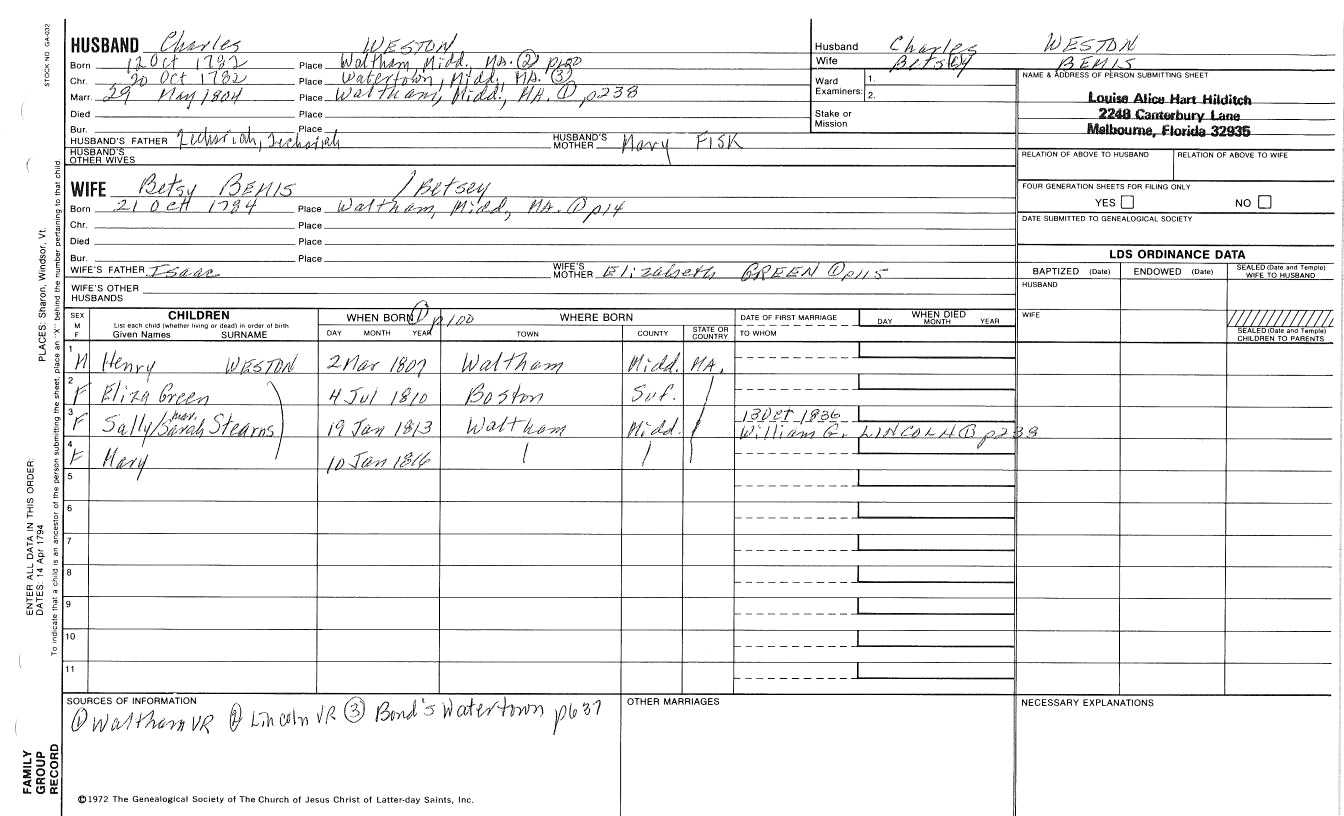 STOCK NO. GA-032
HUSBAND Charles WESTON
Born 12 Oct 1782 Place Waltham, Midd. MA. ②
Chr. 20 Oct 1782 Place Watertown, Midd., MA. ③
Marr. 29 May 1804 Place Waltham, Midd., MA. ① p238
Died Place
Bur. Place
HUSBAND'S FATHER Zechariah, HUSBAND'S MOTHER Mary FISK
HUSBAND'S OTHER WIVES
Husband Charles WESTON
Wife Betsey BEMIS
Ward Examiners: 1.
2.
Stake or Mission
NAME & ADDRESS OF PERSON SUBMITTING SHEET
Louise Alice Hart Hilditch
2248 Canterbury Lane
Melbourne, Florida 32935
RELATION OF ABOVE TO HUSBAND RELATION OF ABOVE TO WIFE
FOUR GENERATION SHEETS FOR FILING ONLY
YES NO
DATE SUBMITTED TO GENEALOGICAL SOCIETY
WIFE Betsy BEMIS / Betsey
Born 21 Oct 1784 Place Waltham, Midd, MA. ① p14
Chr. Place
Died Place
Bur. Place
WIFE'S FATHER Isaac WIFE'S MOTHER Elizabeth GREEN ① p115
WIFE'S OTHER HUSBANDS
LDS ORDINANCE DATA
BAPTIZED (Date) ENDOWED (Date) SEALED (Date and Temple) WIFE TO HUSBAND
HUSBAND
WIFE
SEALED (Date and Temple) CHILDREN TO PARENTS
SEX M F
CHILDREN
List each child (whether living or dead) in order of birth
Given Names SURNAME
WHEN BORN ① p100
DAY MONTH YEAR
WHERE BORN
TOWN COUNTY STATE OR COUNTRY
DATE OF FIRST MARRIAGE
TO WHOM
WHEN DIED
DAY MONTH YEAR
1 M Henry WESTON 2 Mar 1807 Waltham Midd. MA.
2 F Eliza Green 4 Jul 1810 Boston Suf.
3 F Sally/mar. Sarah Stearns 19 Jan 1813 Waltham Midd. 13 Oct 1836
William G. LINCOLN ① p238
4 F Mary 10 Jan 1816
5
6
7
8
9
10
11
SOURCES OF INFORMATION
① Waltham VR ② Lincoln VR ③ Bond's Watertown p637
OTHER MARRIAGES
NECESSARY EXPLANATIONS
©1972 The Genealogical Society of The Church of Jesus Christ of Latter-day Saints, Inc.
PLACES: Sharon, Windsor, Vt.
ENTER ALL DATA IN THIS ORDER:
DATES: 14 Apr 1794
To indicate that a child is an ancestor of the person submitting the sheet, place an "X" behind the number pertaining to that child
FAMILY GROUP RECORD